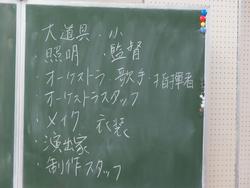 ・大道具・小
・照明 ・監督
・オーケストラ・歌手・指揮者
・オーケストラスタッフ
・メイク 衣装
・演出家
・制作スタッフ